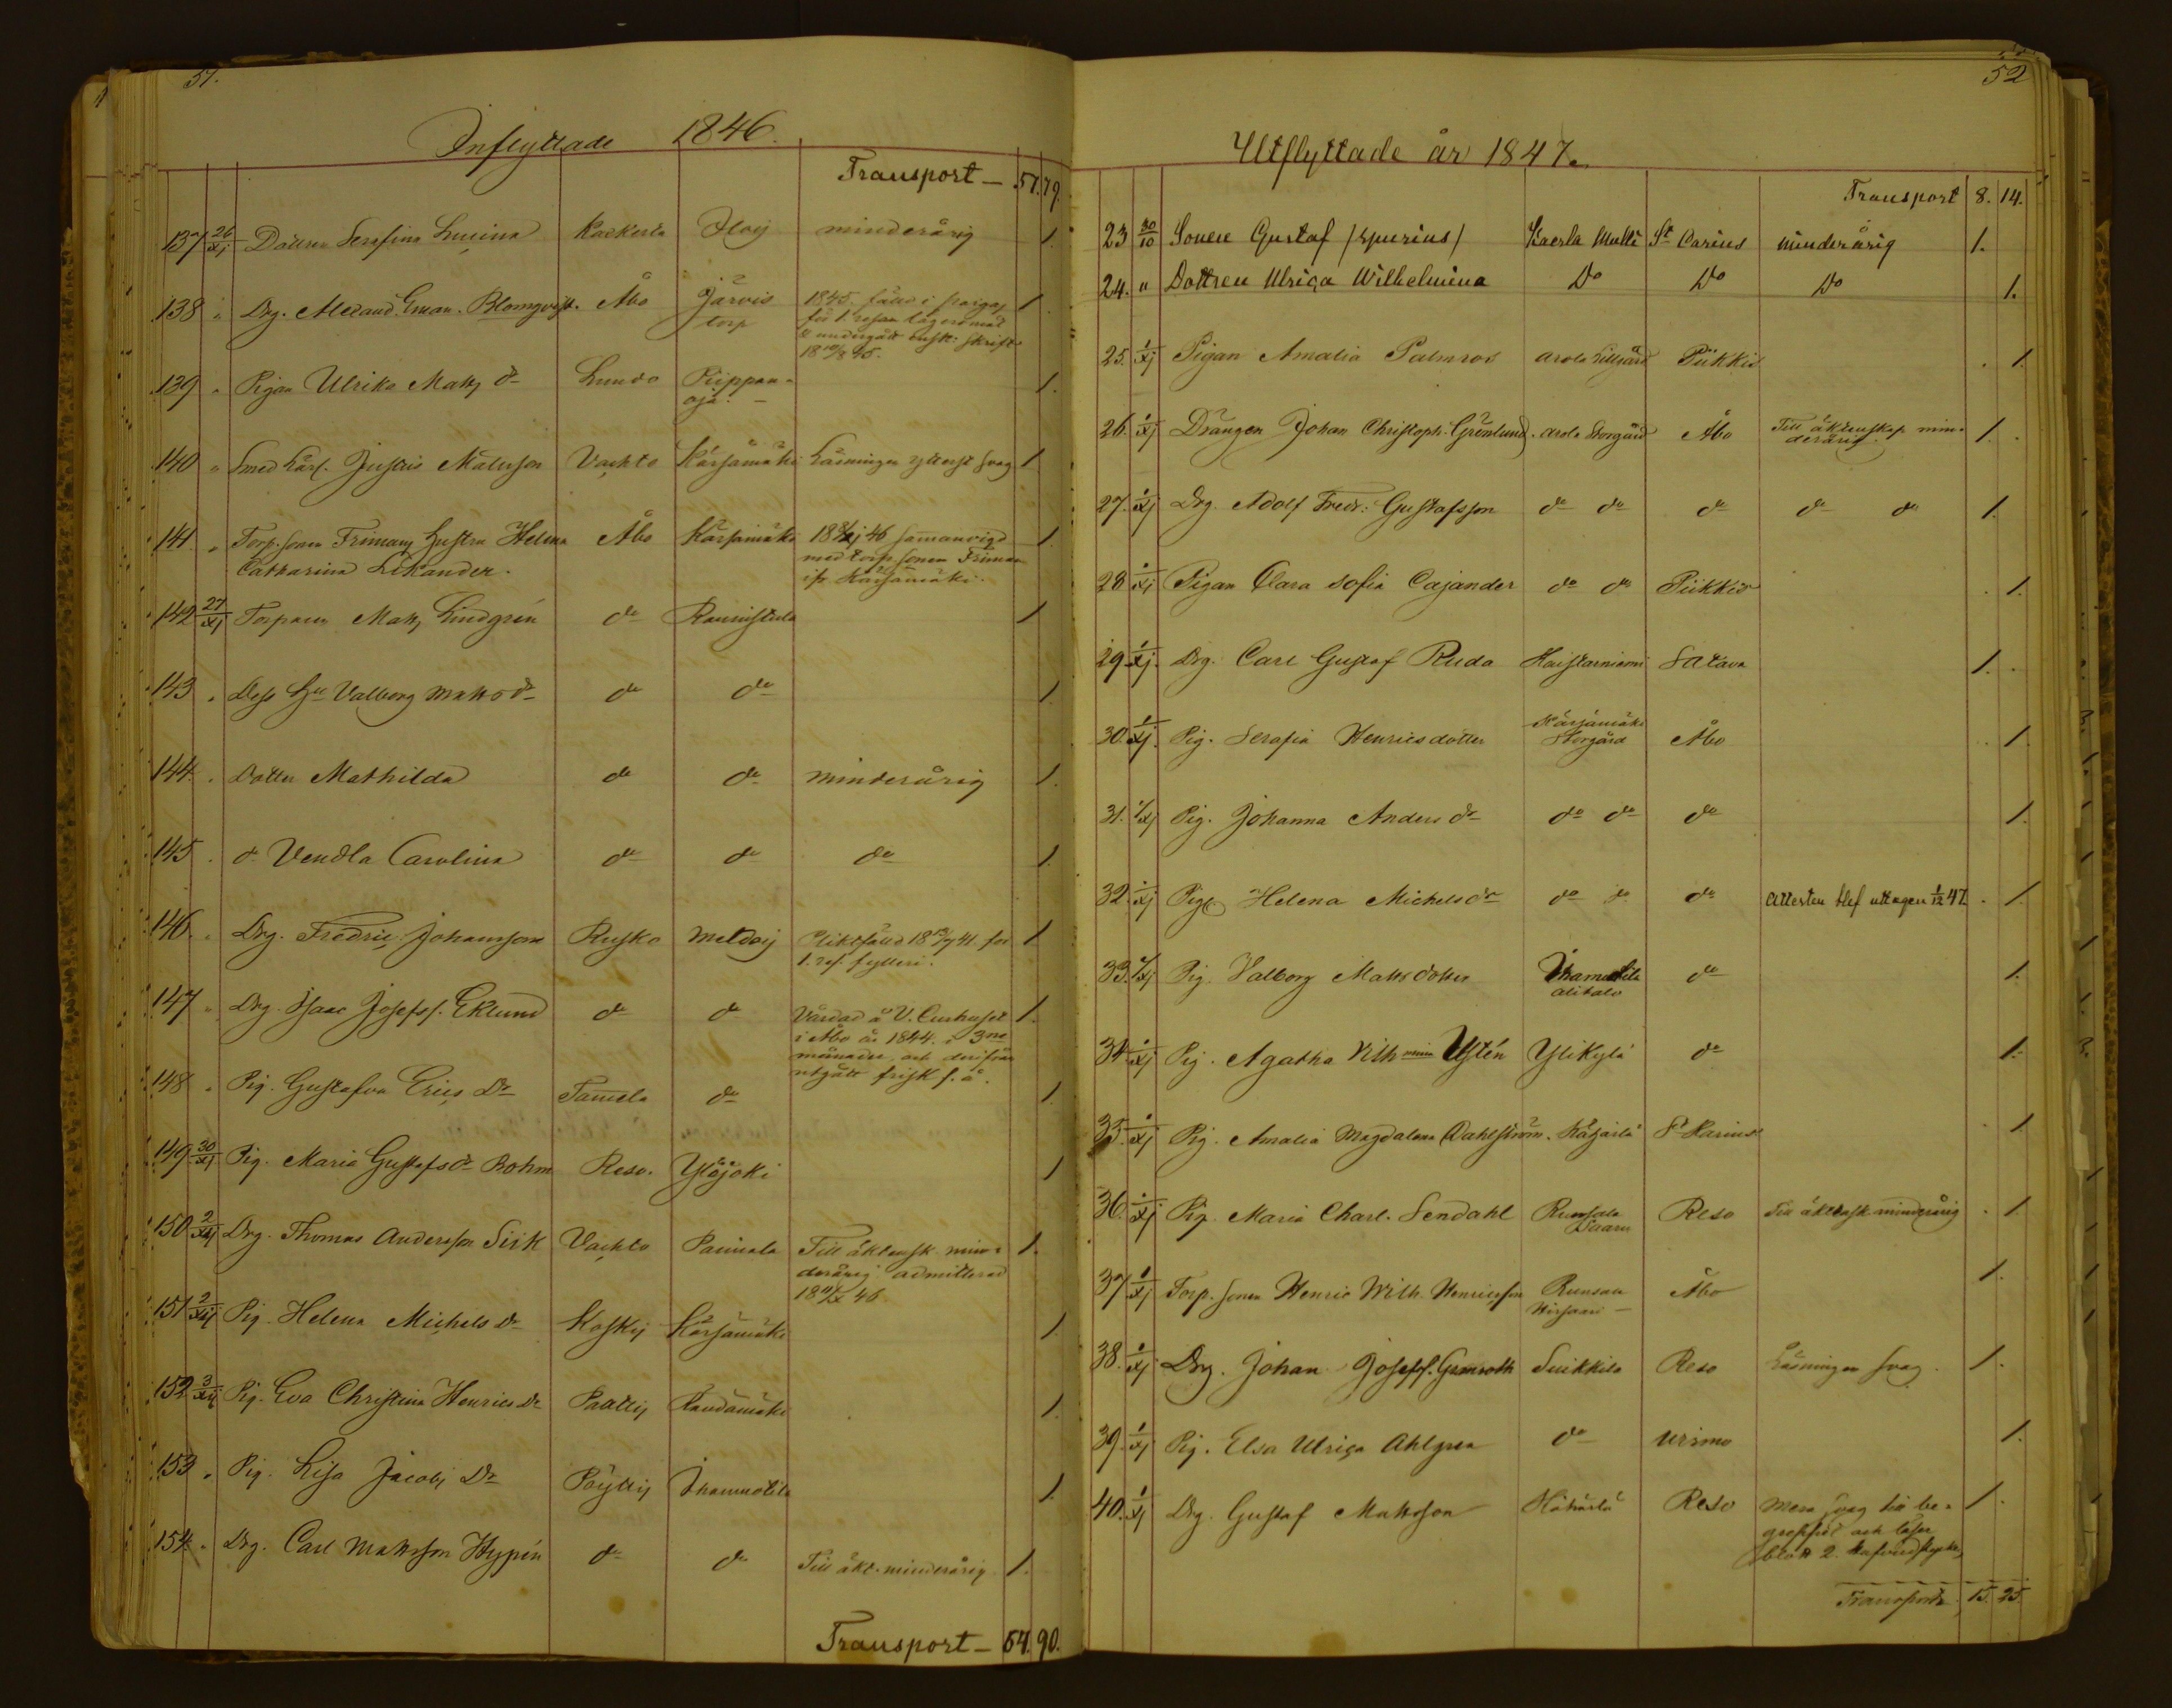 51.
Inflyttade 1846.
Transport — 57. 79.
137 26/xj Dottren Serafina Lucina Kackerta Iloij minderårig 1.
138 " Drg. Alexand. Eman. Blomqvist. Åbo Järvis torp 1
1845. fälld i
för 1. resan lägersmål
& undergått enskt: skrift
18 45.
139 " Pigan Ulrika Matts dr Lundo Piippan-
oja. — 1.
140 " Smed Lärl. Justus Matsson Vachto Kärsämäki Läsningen ytterst svag 1
141 " Torp. sonen Frimans hustru Helena Åbo Kärsämäki 1
Catharina Likander.
46 sammanvigd
med torp. sonen Friman
ifr. Kärsämäki.
142 27/xj Torparen Matts Lindgrén do Raunistula 1
143 " Dess Hu Valborg Matts dr do do 1.
144. " Dotter Mathilda do do minderårig 1.
145 " do Vendla Carolina do do do 1.
146. " Drg. Fredric Johansson Rusko Meldoij Pliktfälld 41. för 1
1. res. fylleri.
147 " Drg. Isaac Josefss. Eklund do do Vårdad å V. Curhuset 1.
i Åbo år 1844. i 3ne
månader, och derifrån
utgått frisk s. å.
148 " Pig. Gustafva Erics Dr Tamela do 1.
149 30/xj Pig. Maria Gustafs dr Bohm Reso. Yläjoki 1
150 2/xij Drg. Thomas Andersson Siik Vachto Paimala Till äktensk. min- 1.
derårig admitterad
46
151 2/xij Pig. Helena Michels Dr Koskij Kärsämäki 1.
152 3/xij Pig. Eva Christina Henrics Dr Paattij Randämäki 1.
153 " Pig. Lisa Jacobs Dr Pöytij Ihamuotila 1.
154. " Drg. Carl Mattsson Hypén do do Till äkt. minderårig 1.
Transport — 64. 90.
52
Utflyttade år 1847.
Transport 8. 14.
23 30/10 Sonen Gustaf /spurius/ Kaerla Mulli St Carins minderårig 1.
24. " Dottren Ulrica Wilhelmina Do Do Do 1.
25. 1/xj Pigan Amalia Palmros Arola Lillgård Piikkis . 1.
26. 1/xj Drängen Johan Christoph. Grönlund. Arola Storgård Åbo Till äktenskap min- 1. .
derårig.
27. 1/xj Drg. Adolf Fredr: Gustafsson do do do do do 1.
28 1/xj Pigan Clara Sofia Cajander do do Piikkis . 1.
29. 1/xj. Drg. Carl Gustaf Ruda Haistarniemi Satava 1. .
30. 1/xj. Pig. Serafia Henricsdotter Kärsämäki
Storgård Åbo . 1.
31. 1/xj Pig. Johanna Anders dr do do do 1.
32. 1/xj Pig. Helena Michels dr do do do Attesten blef uttagen 1/12 47. . 1.
33. 1/xj Pig. Valborg Mattsdotter Ihamuotila
Alitalo do 1.
34 1/xj Pig. Agatha Vilhmina Ystén Ylikylä do 1.
35. 1/xj Pig. Amalia Magdalena Dahlström. St Karins . 1
36. 1/xj Pig. Maria Charl. Sendahl Runsala
Saaru Reso Till äktensk. minderårig . 1
37 1/xj Torp. sonen Henric Wilh. Henricsson Runsala
Åbo 1.
38. 1/xj Drg. Johan Josefss. Grönroth Suikkila Reso Läsningen svag. 1.
39. 1/xj Pig. Elsa Ulrica Ahlgren do Urimo 1.
40. 1/xj Drg. Gustaf Mattsson Reso Mera svag till be- 1.
greppet och läser
blott 2. hufvudstycken
Transport. 15. 25